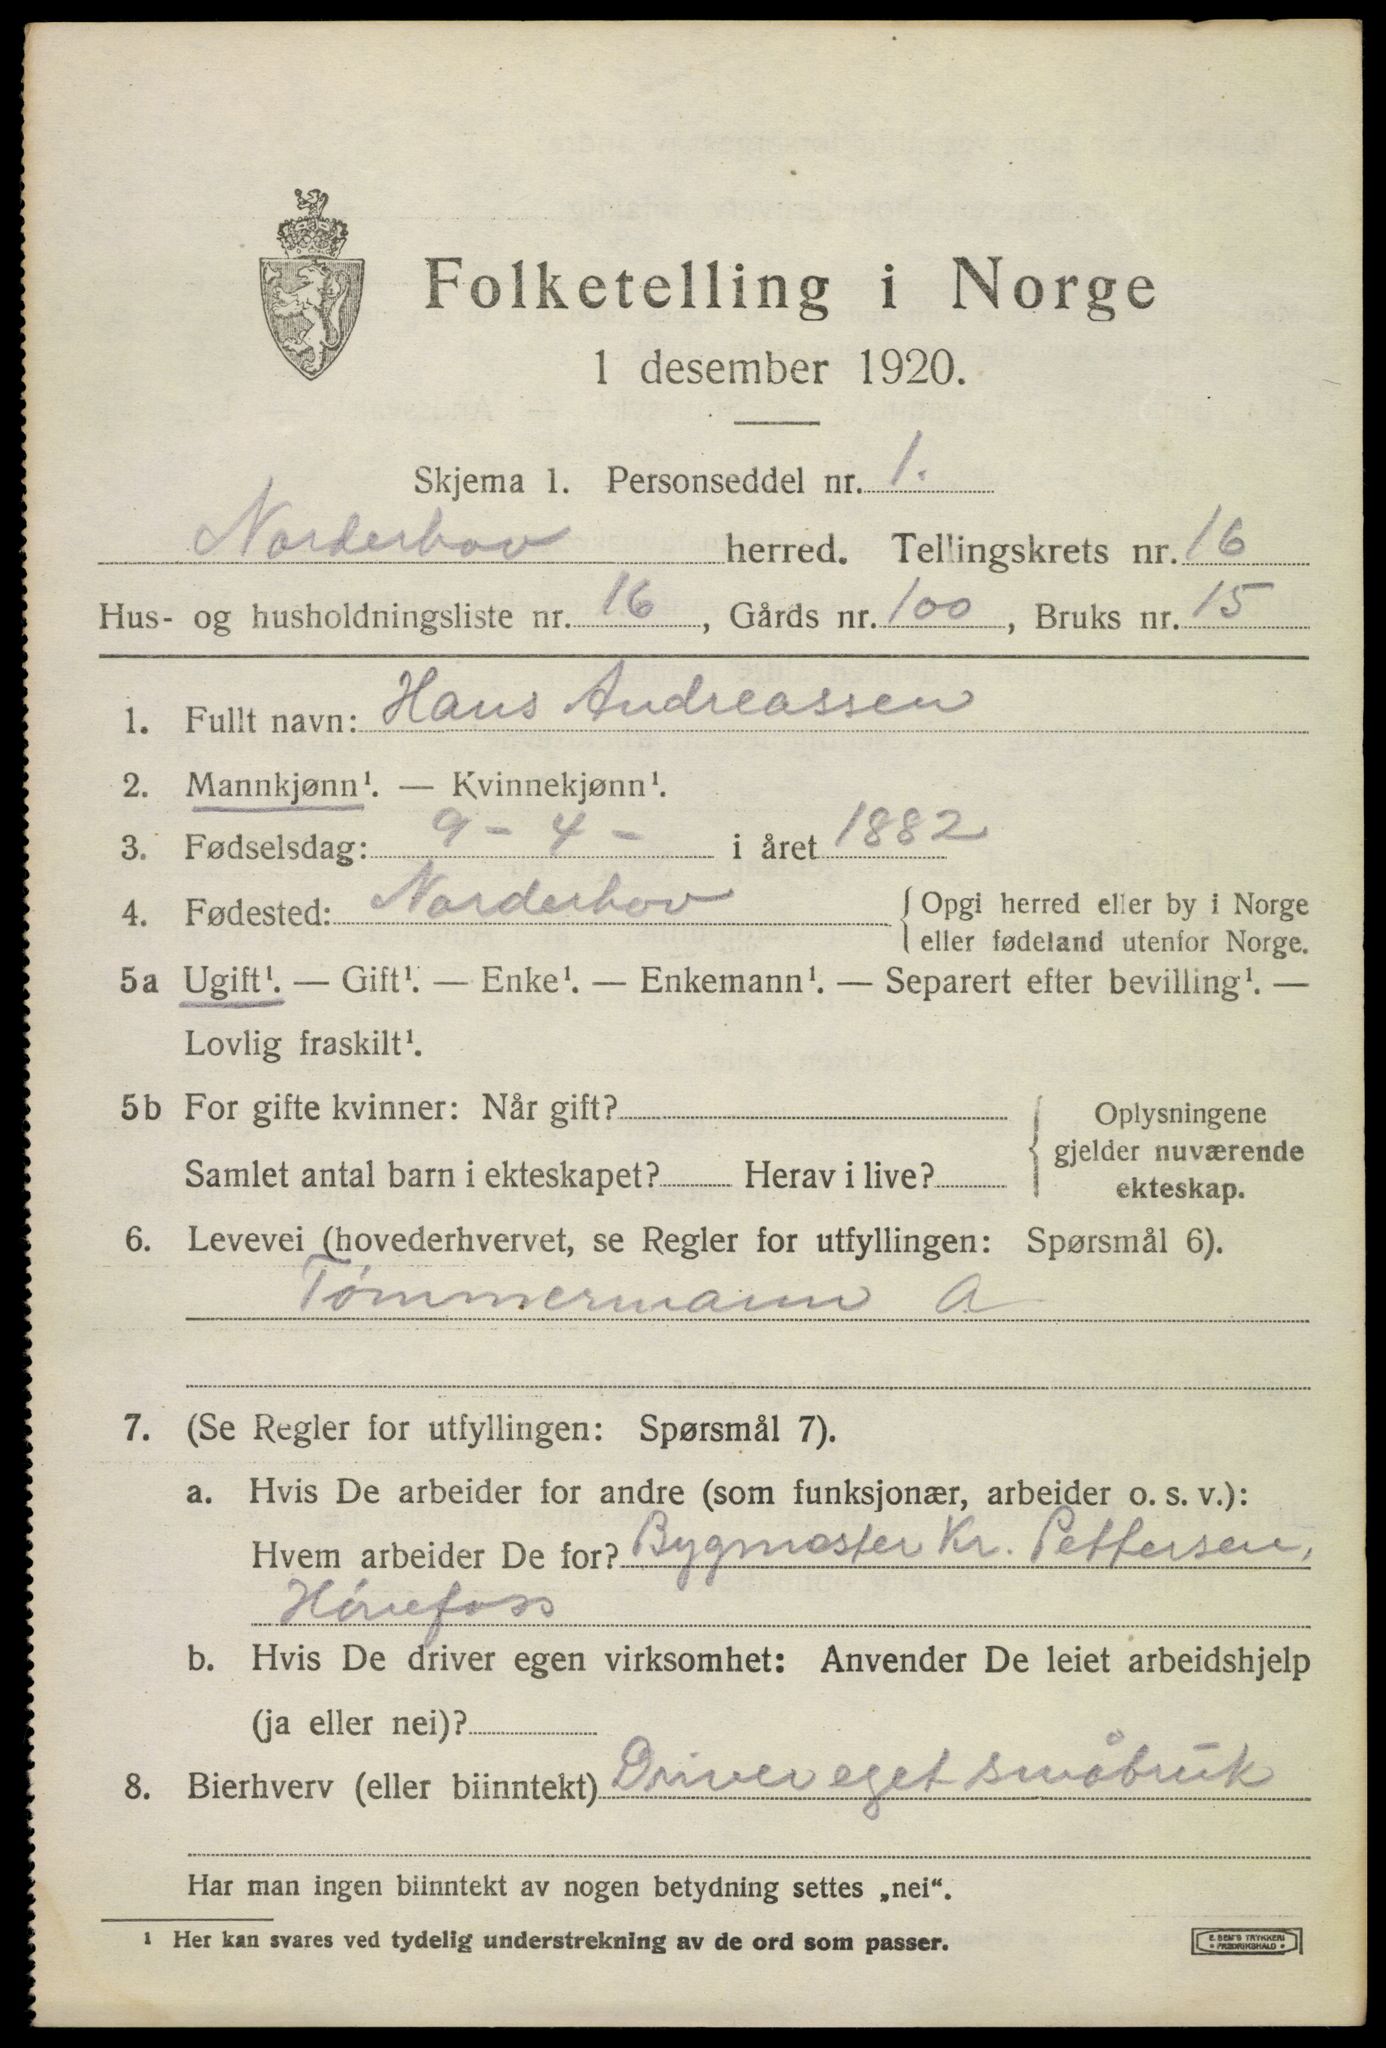 Folketelling i Norge
1 desember 1920.
Skjema 1. Personseddel nr. 1.
Norderhov herred. Tellingskrets nr. 16
Hus- og husholdningsliste nr. 16, Gårds nr. 100, Bruks nr. 15
1. Fullt navn: Hans Andreassen
2. Mannkjønn¹. — Kvinnekjønn¹.
3. Fødselsdag: 9 - 4 - i året 1882
4. Fødested: Norderhov { Opgi herred eller by i Norge
eller fødeland utenfor Norge.
5a Ugift¹. — Gift¹. — Enke¹. — Enkemann¹. — Separert efter bevilling¹. —
Lovlig fraskilt¹.
5b For gifte kvinner: Når gift? { Oplysningene
gjelder nuværende
Samlet antal barn i ekteskapet? Herav i live? ekteskap.
6. Levevei (hovederhvervet, se Regler for utfyllingen: Spørsmål 6).
Tømmermann a
7. (Se Regler for utfyllingen: Spørsmål 7).
a. Hvis De arbeider for andre (som funksjonær, arbeider o. s. v.):
Hvem arbeider De for? Bygmester Kr. Pettersen,
Hønefoss
b. Hvis De driver egen virksomhet: Anvender De leiet arbeidshjelp
(ja eller nei)?
8. Bierhverv (eller biinntekt) Driver eget småbruk
Har man ingen biinntekt av nogen betydning settes „nei“.
¹ Her kan svares ved tydelig understrekning av de ord som passer.
E. SEM'S TRYKKERI
• FREDRIKSHALD •